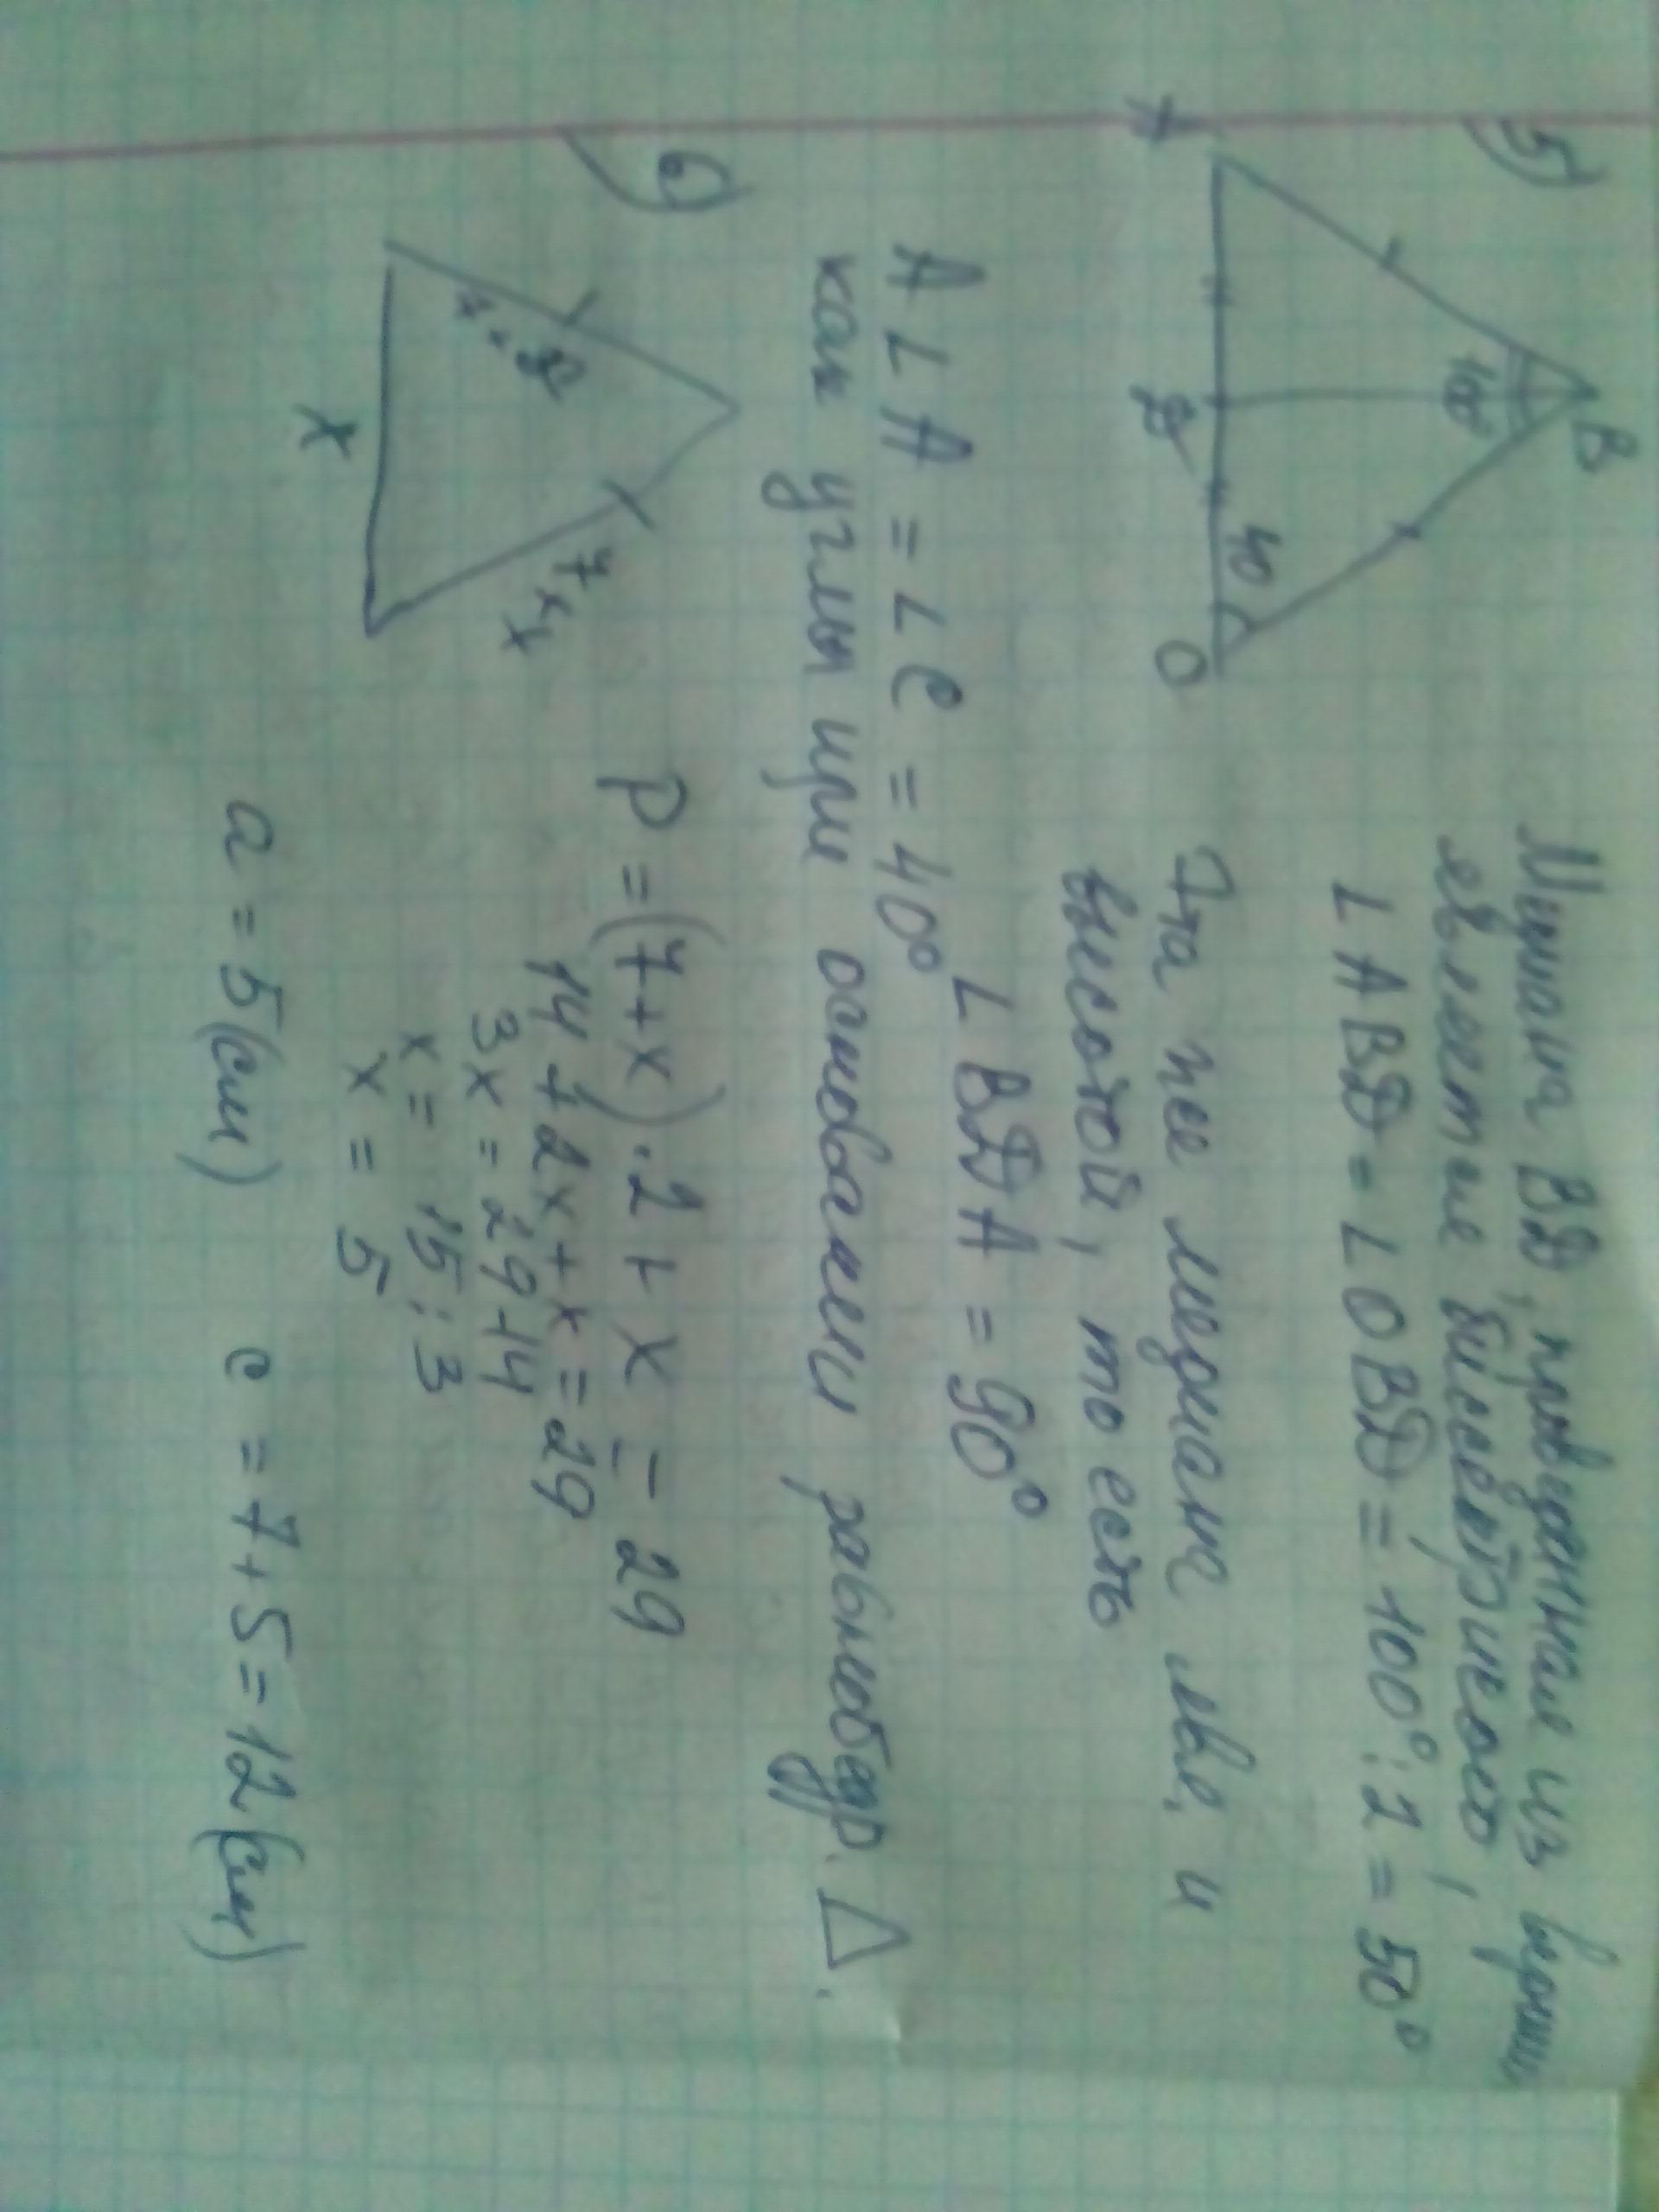 5)
B
100°
40
A
D
O
Медиана BD, проведенная из верши
является биссектрисой,
∠ABD = ∠OBD = 100° : 2 = 50°
Эта же медиана явл. и
высотой, то есть
∠BDA = 90°
∠A = ∠C = 40°
как углы при основании равнобедр. △.
6)
7+x
x
P = (7+x)·2 + x = 29
14 + 2x + x = 29
3x = 29-14
x = 15 : 3
x = 5
a = 5(см) c = 7+5=12(см)